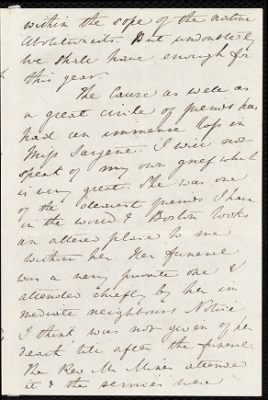 within the scope of the nature
Abolitionists. But undoubtedly
we shall have enough for
this year.
The Cause as well as
a great circle of friends has
had an immense loss in
Miss Sargent. I will not
speak of my own grief which
is very great. She was one
of the dearest friends I have
in the world & Boston looks
an altered place to me
without her. Her funeral
was a very private one &
attended chiefly by her im
mediate neighbours. Notice
I think was not given of her
death till after the funeral.
The Rev. Mr. Miner attended
it & the services were